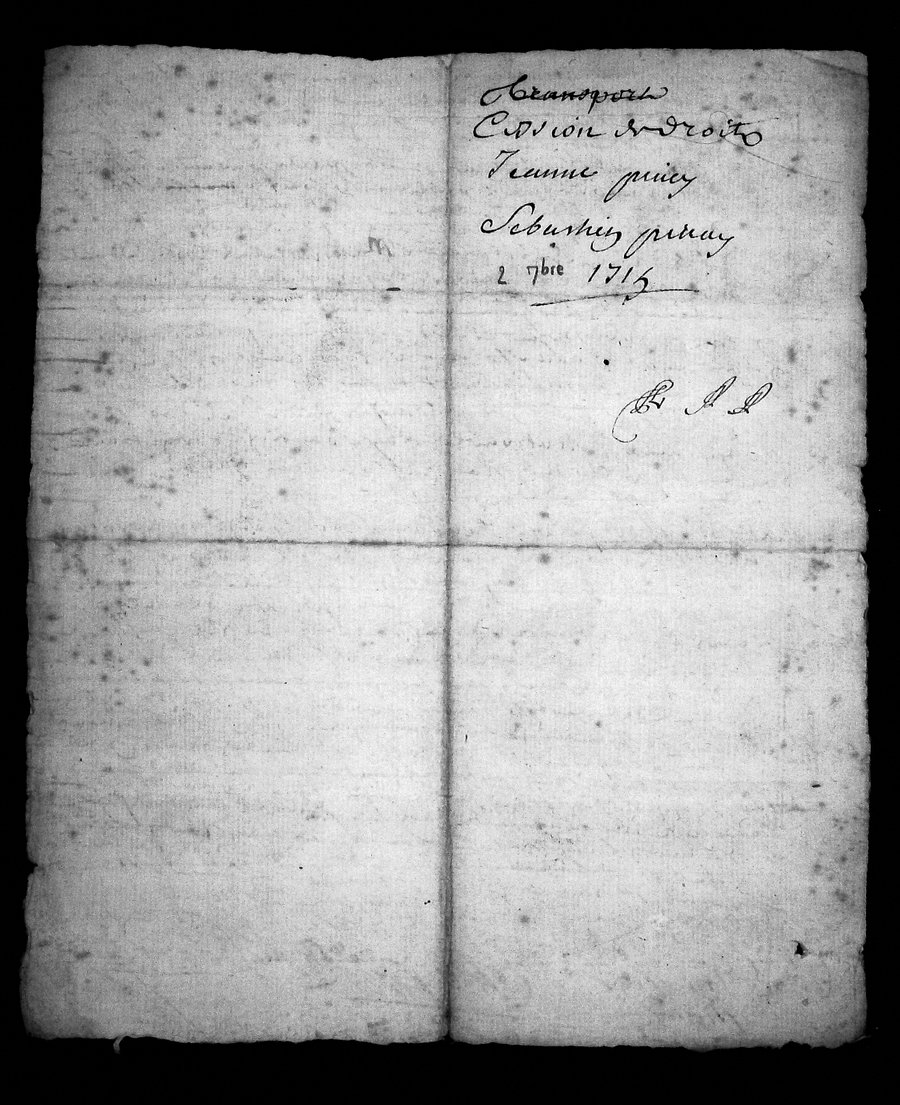 Transport
Cession de droits
Jeanne
Sebastien
2 7bre 1715